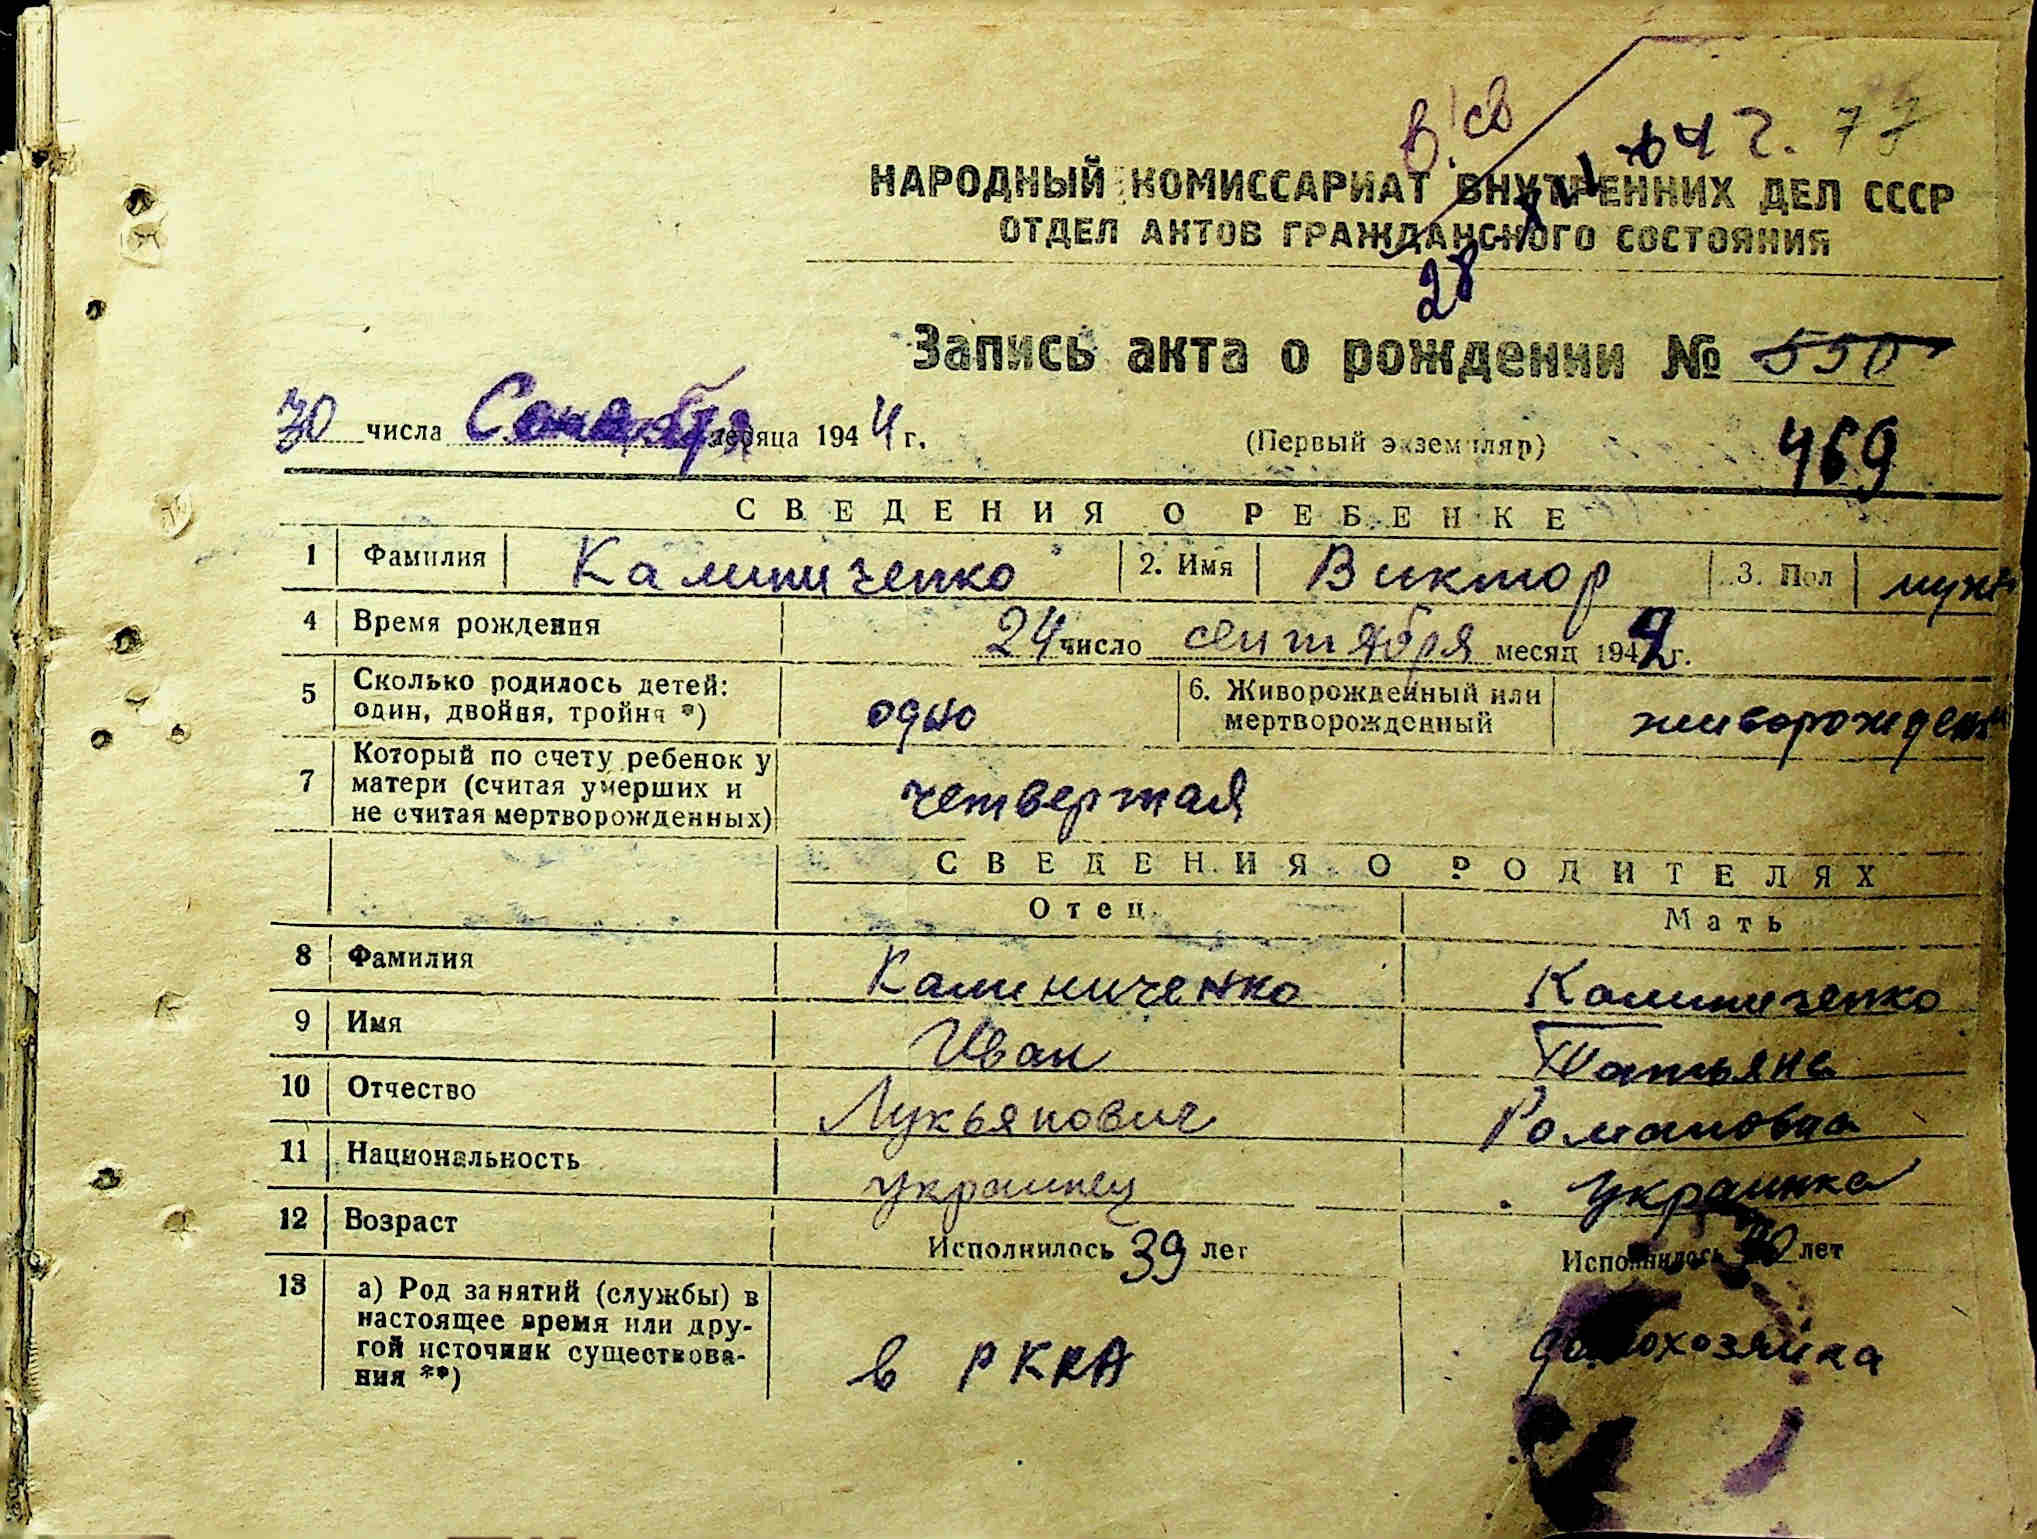 В. св
28 64 г. 77
НАРОДНЫЙ КОМИССАРИАТ ВНУТРЕННИХ ДЕЛ СССР
ОТДЕЛ АКТОВ ГРАЖДАНСКОГО СОСТОЯНИЯ
Запись акта о рождении № 550
30 числа месяца 1944 г. (Первый экземпляр) 469
СВЕДЕНИЯ О РЕБЕНКЕ
1 Фамилия Калиниченко 2. Имя Виктор 3. Пол муж
4 Время рождения 24 число сентября месяц 1942 г.
5 Сколько родилось детей: один, двойня, тройня *) одно 6. Живорожденный или мертворожденный живорожден
7 Который по счету ребенок у матери (считая умерших и не считая мертворожденных) четвертая
СВЕДЕНИЯ О РОДИТЕЛЯХ
Отец Мать
8 Фамилия Калиниченко Калиниченко
9 Имя Иван Татьяна
10 Отчество Лукьянович Романовна
11 Национальность украинец украинка
12 Возраст Исполнилось 39 лет Исполнилось лет
13 а) Род занятий (службы) в настоящее время или дру-
гой источник существова-
ния **) в РККА домохозяйка